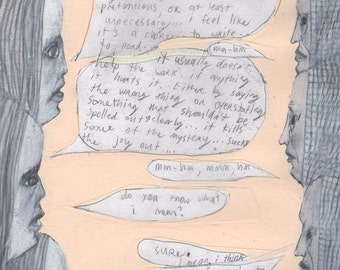 pretentious or at least
unnecessary... i feel like
it's a chore... to write...
to read...
mm-hm
it usually doesn't
help the work. if anything
it hurts it... Either by saying
the wrong thing or overstating
something that shouldn't be
spelled out so clearly... it kills
some of the mystery... sucks
the joy out...
mm-hm mmm hm
do you know what
i mean?
sure.
i mean, i think